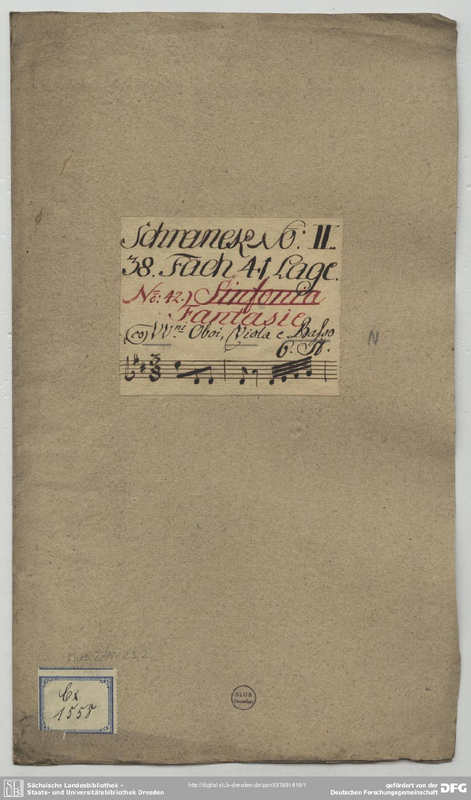 Schranck No: II.
38. Fach 41 Lage.
No: 42.) Sinfonia
Fantasie
co VVni Oboi, Viola e Basso
6. St.
N
Mus. 2-N-23,2
Cx
1558
SLUB
Dresden
Sächsische Landesbibliothek –
Staats- und Universitätsbibliothek Dresden
http://digital.slub-dresden.de/ppn337691819/1
gefördert von der
Deutschen Forschungsgemeinschaft
DFG